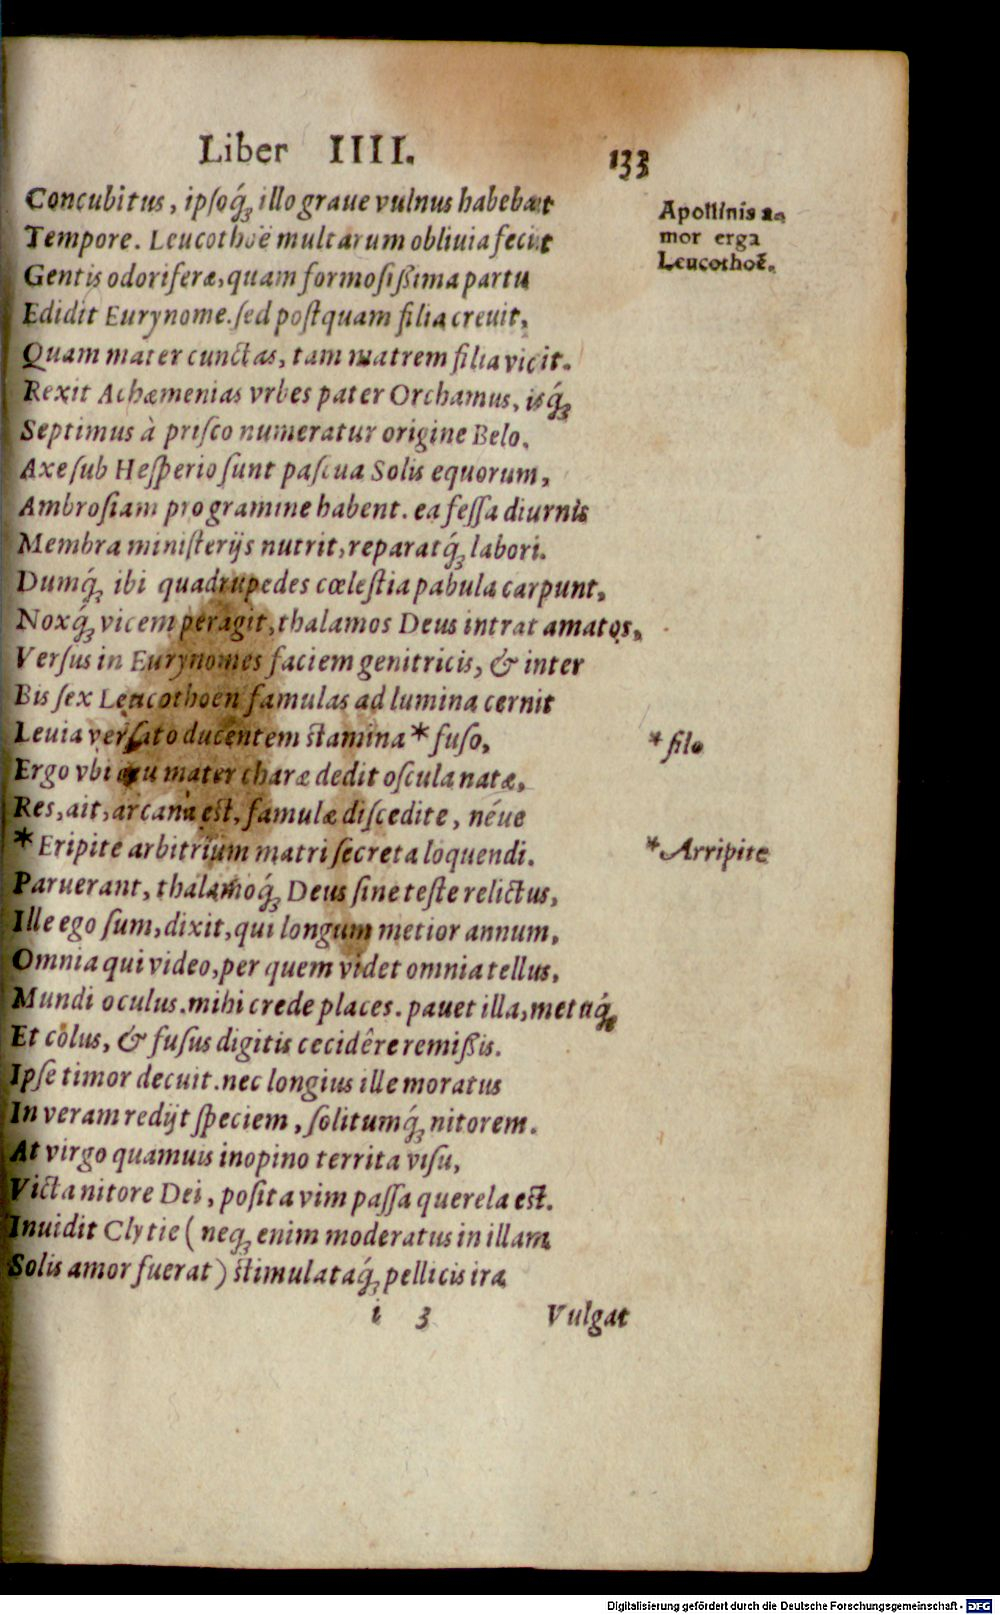 Liber IIII. 133
Concubitus, ipſoq́ꝫ illo graue vulnus habebat
Apollinis a-
Tempore. Leucothoë multarum obliuia fecit
mor erga
Leucothoë.
Gentis odoriferæ, quam formoſiſſima partu
Edidit Eurynome. ſed poſtquam filia creuit,
Quam mater cunctas, tam matrem filia vicit.
Rexit Achæmenias vrbes pater Orchamus, isq́ꝫ
Septimus à priſco numeratur origine Belo.
Axe ſub Heſperio ſunt paſcua Solis equorum,
Ambroſiam pro gramine habent. ea feſſa diurnis
Membra miniſterijs nutrit, reparatq́ꝫ labori.
Dumq́ꝫ ibi quadrupedes cœleſtia pabula carpunt,
Noxq́ꝫ vicem peragit, thalamos Deus intrat amatos,
Verſus in Eurynomes faciem genitricis, & inter
Bis ſex Leucothoën famulas ad lumina cernit
Leuia verſato ducentem ſtamina * fuſo,
* filo
Ergo vbi ceu mater charæ dedit oſcula natæ,
Res, ait, arcana est, famulæ diſcedite, néue
* Eripite arbitrium matri ſecreta loquendi.
* Arripite
Paruerant, thalamoq́ꝫ Deus ſine teſte relictus,
Ille ego ſum, dixit, qui longum metior annum,
Omnia qui video, per quem videt omnia tellus,
Mundi oculus. mihi crede places. pauet illa, metuq́ꝫ
Et colus, & fuſus digitis cecidêre remiſſis.
Ipſe timor decuit. nec longius ille moratus
In veram redijt ſpeciem, ſolitumq́ꝫ nitorem.
At virgo quamuis inopino territa viſu,
Victa nitore Dei, poſita vim paſſa querela est.
Inuidit Clytie ( neqꝫ enim moderatus in illam
Solis amor fuerat ) ſtimulataq́ꝫ pellicis ira
i 3 Vulgat
Digitalisierung gefördert durch die Deutsche Forschungsgemeinschaft - DFG